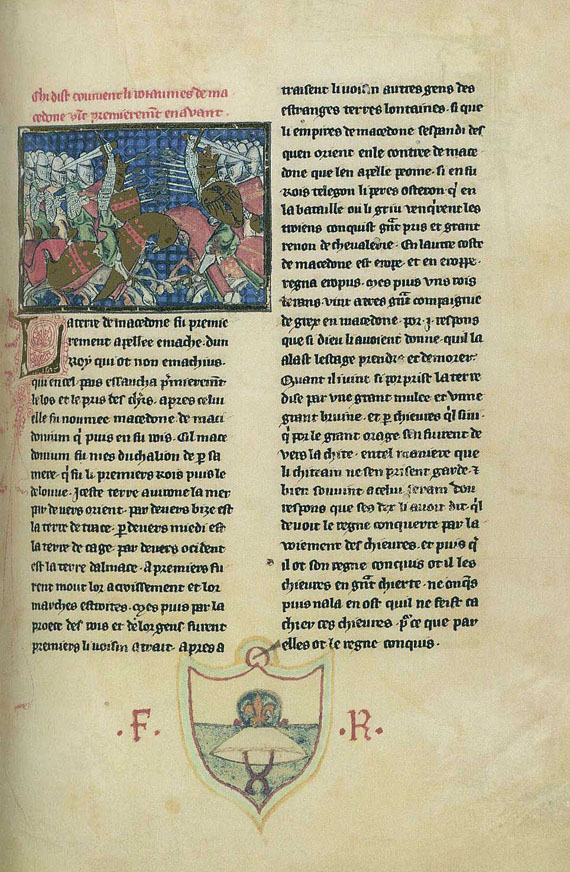 Chi dist coument li roiaumes de ma
cedone vĩt premierem̃t en auant.
La terre de macedone fu premie
rement apellee emache dun
Roy qui ot non emachius.
qui en cel pais essaucha p̃mierem̃t
le los et le pris des
apres celui
elle fu noumee macedone de maci
donium q̃ puis en fu rois. Cil mace
donium fu nies duchalion de p sa
mere q̃ fu li premiers rois puis le
deluiue. Iceste terre auirone la mer
par deuers orient. par deuers bize est
la terre de trace. p deuers miedi est
la terre de cage. par deuers ocident
est la terre dalmace. a premiers fu
rent mout lor acroissement et lor
marches estroites. mes puis par la
proece des rois et de lor gens furent
premiers li uoisin atrait. apres a
traisent li uoisin autres gens des
estranges terres lontaines. si que
li empires de macedone sespandi des
quen orient en le contree de mace
done que len apelle peone. si en fu
Rois telegon li peres q̃ en
la bataille ou li griu venq̃rent les
troiens conquist g̃nt pris et grant
renon de cheualerie. En lautre coste
de macedone est erope. et en eroppe
regna eropus. mes puis uns rois
vint a tres g̃nt compaignie
de grex en macedone. por .j. respons
que si dieu li auoient donne. quil la
alast lestage prendre et demorer.
Quant il i uint si porprist la terre
dise par vne grant et vnne
grant bruine. et p chieures q̃l siui
q̃ por le grant orage sen fuirent de
vers la chite. en tel maniere que
li chitain ne sen prisent garde. ⁊
bien souuint a celui dou
respons que ses dex li auoit dit. q̃l
deuoit le regne conquerre par la
voiement des chieures. et puis q̃
il ot son regne conquis ot il les
chieures en g̃nt chierte. ne onq̃s
puis nala en ost quil ne feist ca
chier ces chieures. p̃ ce que par
elles ot le regne conquis.
.F. .R.